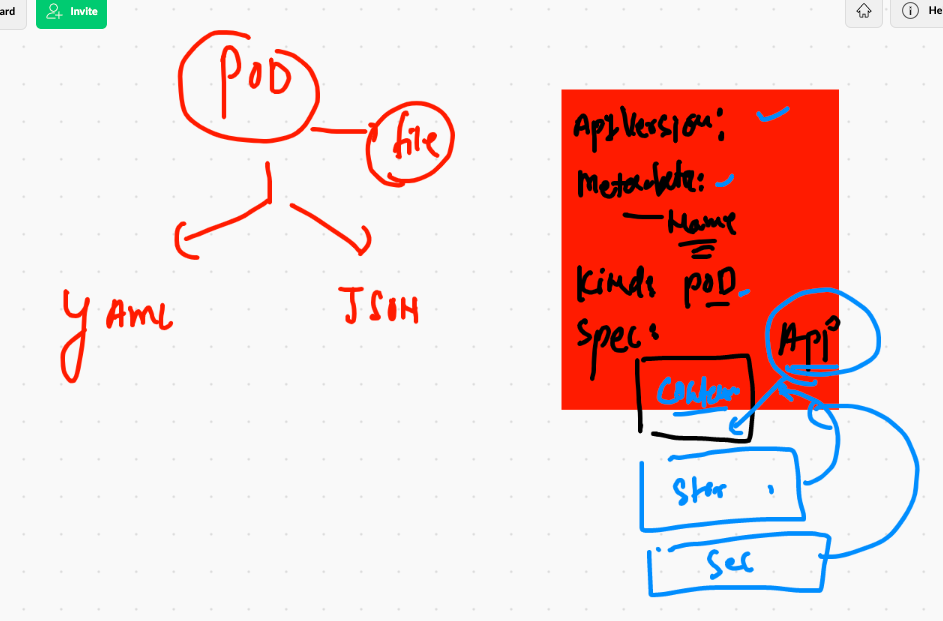 ard
Invite
He
POD
file
YAML
JSON
ApiVersion:
Metadata:
Name
Kind: POD
Spec:
Api
Stor
Sec